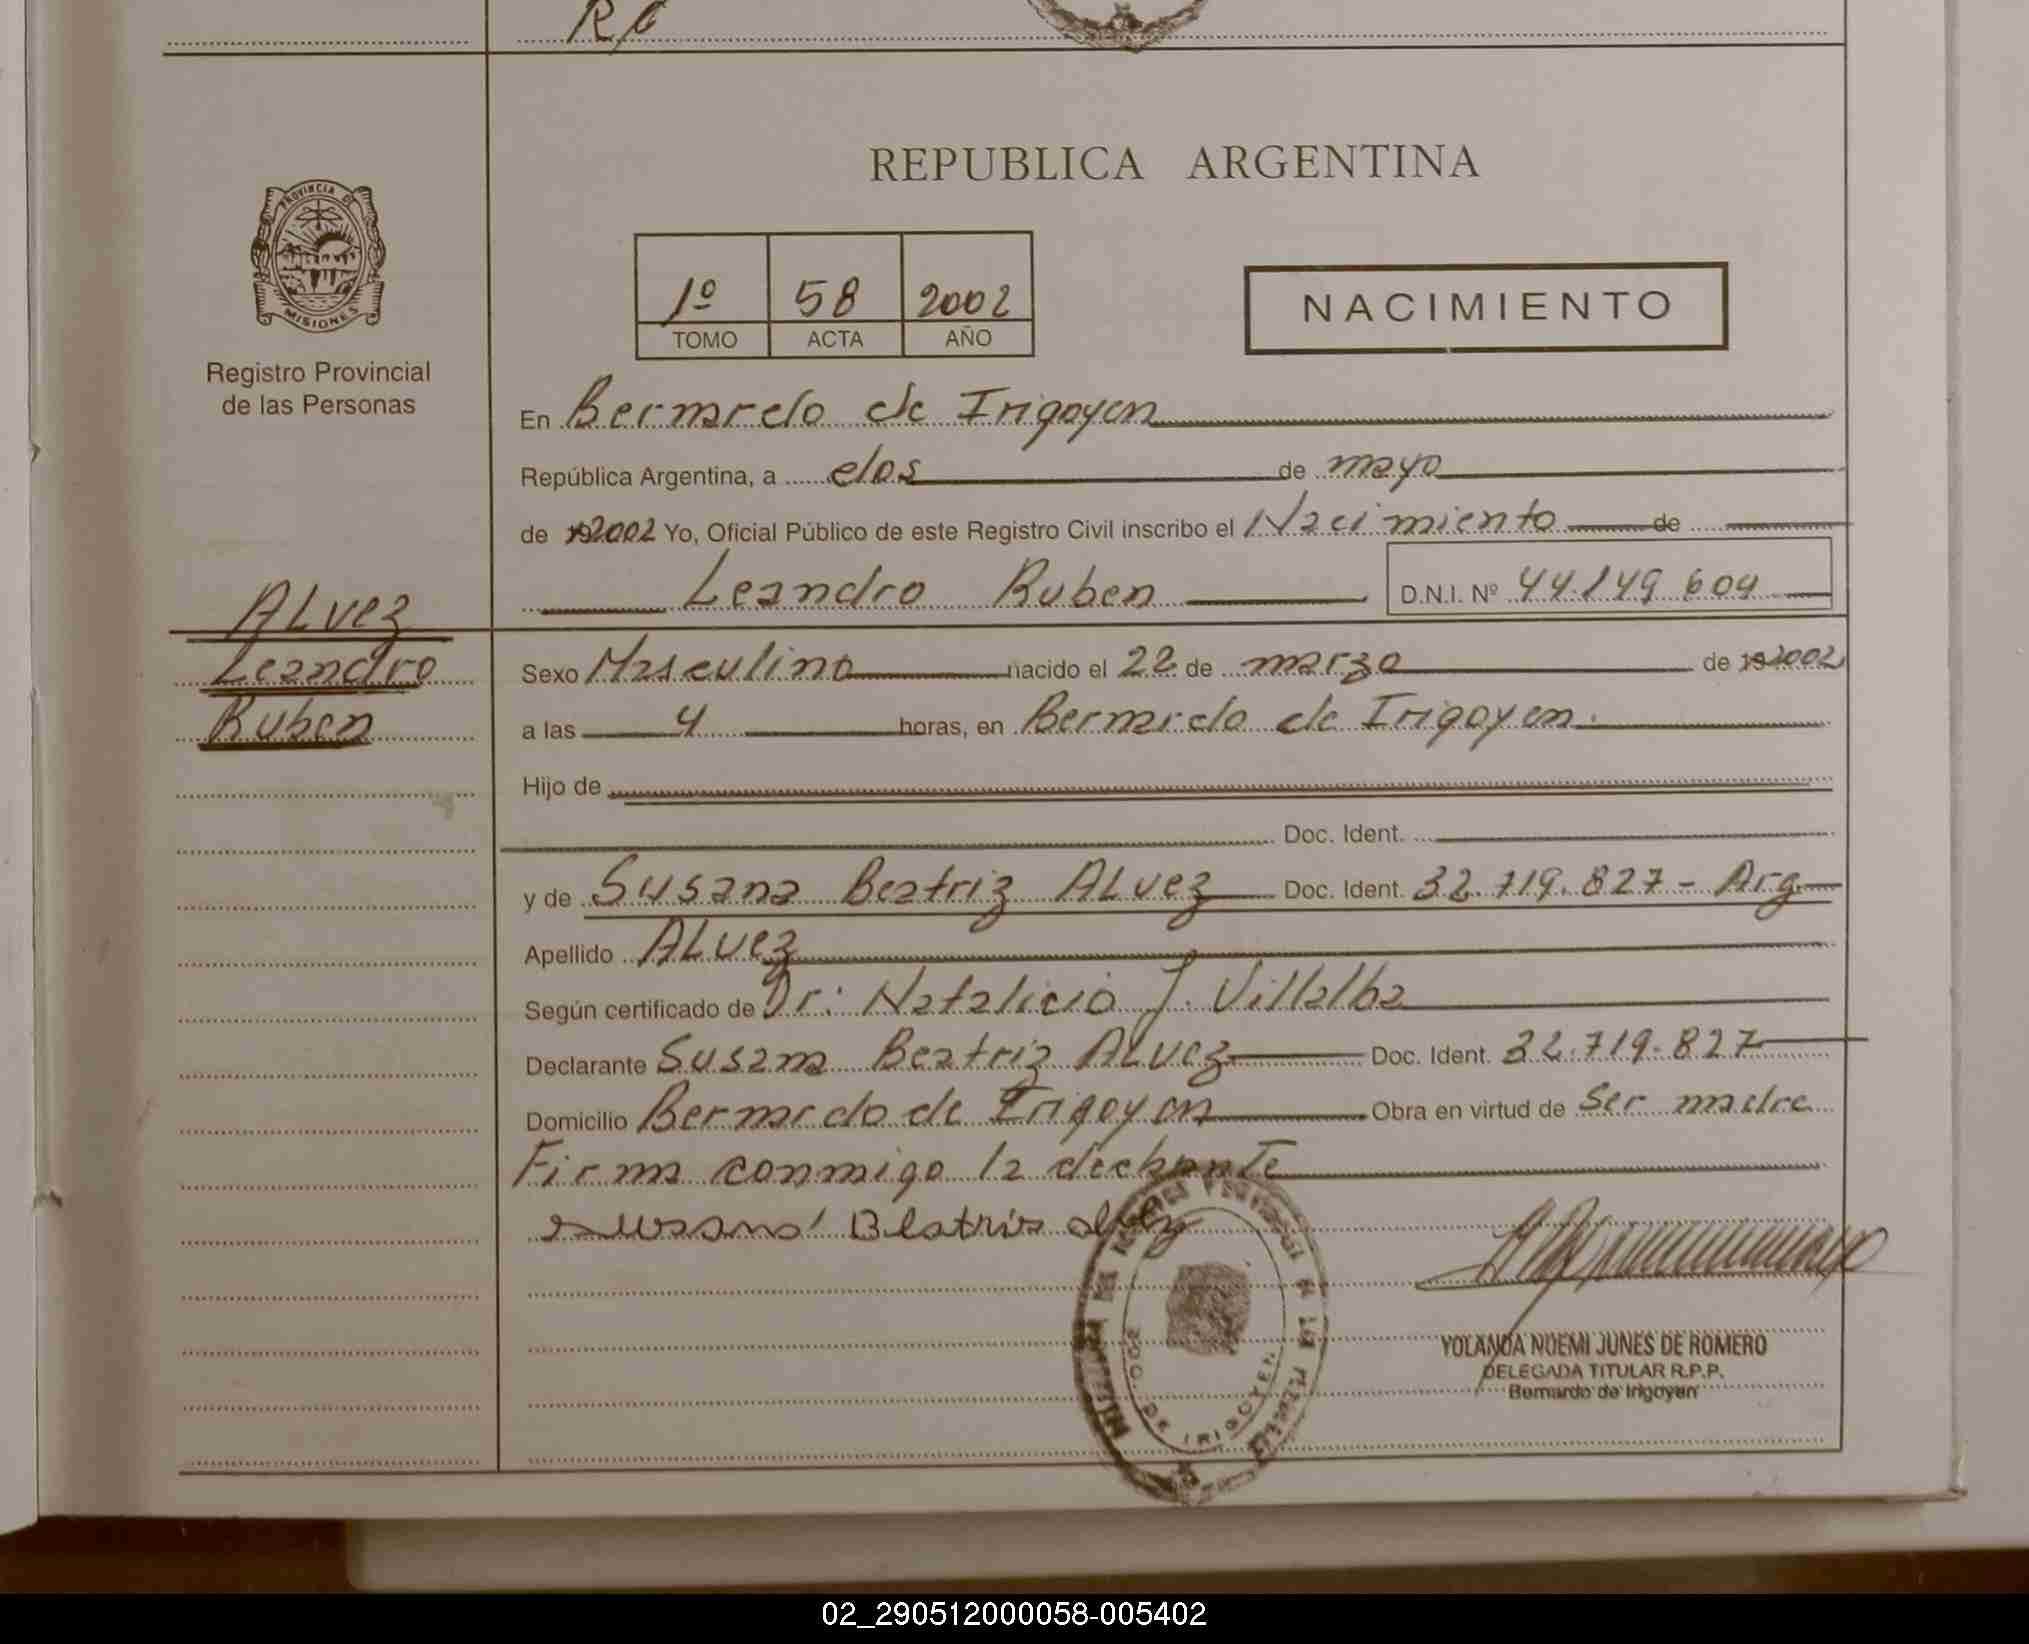 PROVINCIA DE
MISIONES
Registro Provincial
de las Personas
ALvez
Leandro
Ruben
REPUBLICA ARGENTINA
1º 58 2002
TOMO ACTA AÑO
NACIMIENTO
En Bernardo de Irigoyen
República Argentina, a dos de mayo
de 192002 Yo, Oficial Público de este Registro Civil inscribo el Nacimiento de
Leandro Ruben D.N.I. Nº 44.149.604
Sexo Masculino nacido el 22 de marzo de 192002
a las 4 horas, en Bernardo de Irigoyen.
Hijo de
Doc. Ident.
y de Susana Beatriz ALvez Doc. Ident. 32.719.827 - Arg.
Apellido ALvez
Según certificado de Dr: Natalicio J. Villalba
Declarante Susana Beatriz ALvez Doc. Ident. 32.719.827
Domicilio Bernardo de Irigoyen Obra en virtud de Ser madre
Firma conmigo la declarante
Susana Beatris
DE IRIGOYEN
YOLANDA NOEMI JUNES DE ROMERO
DELEGADA TITULAR R.P.P.
Bernardo de Irigoyen
02_290512000058-005402